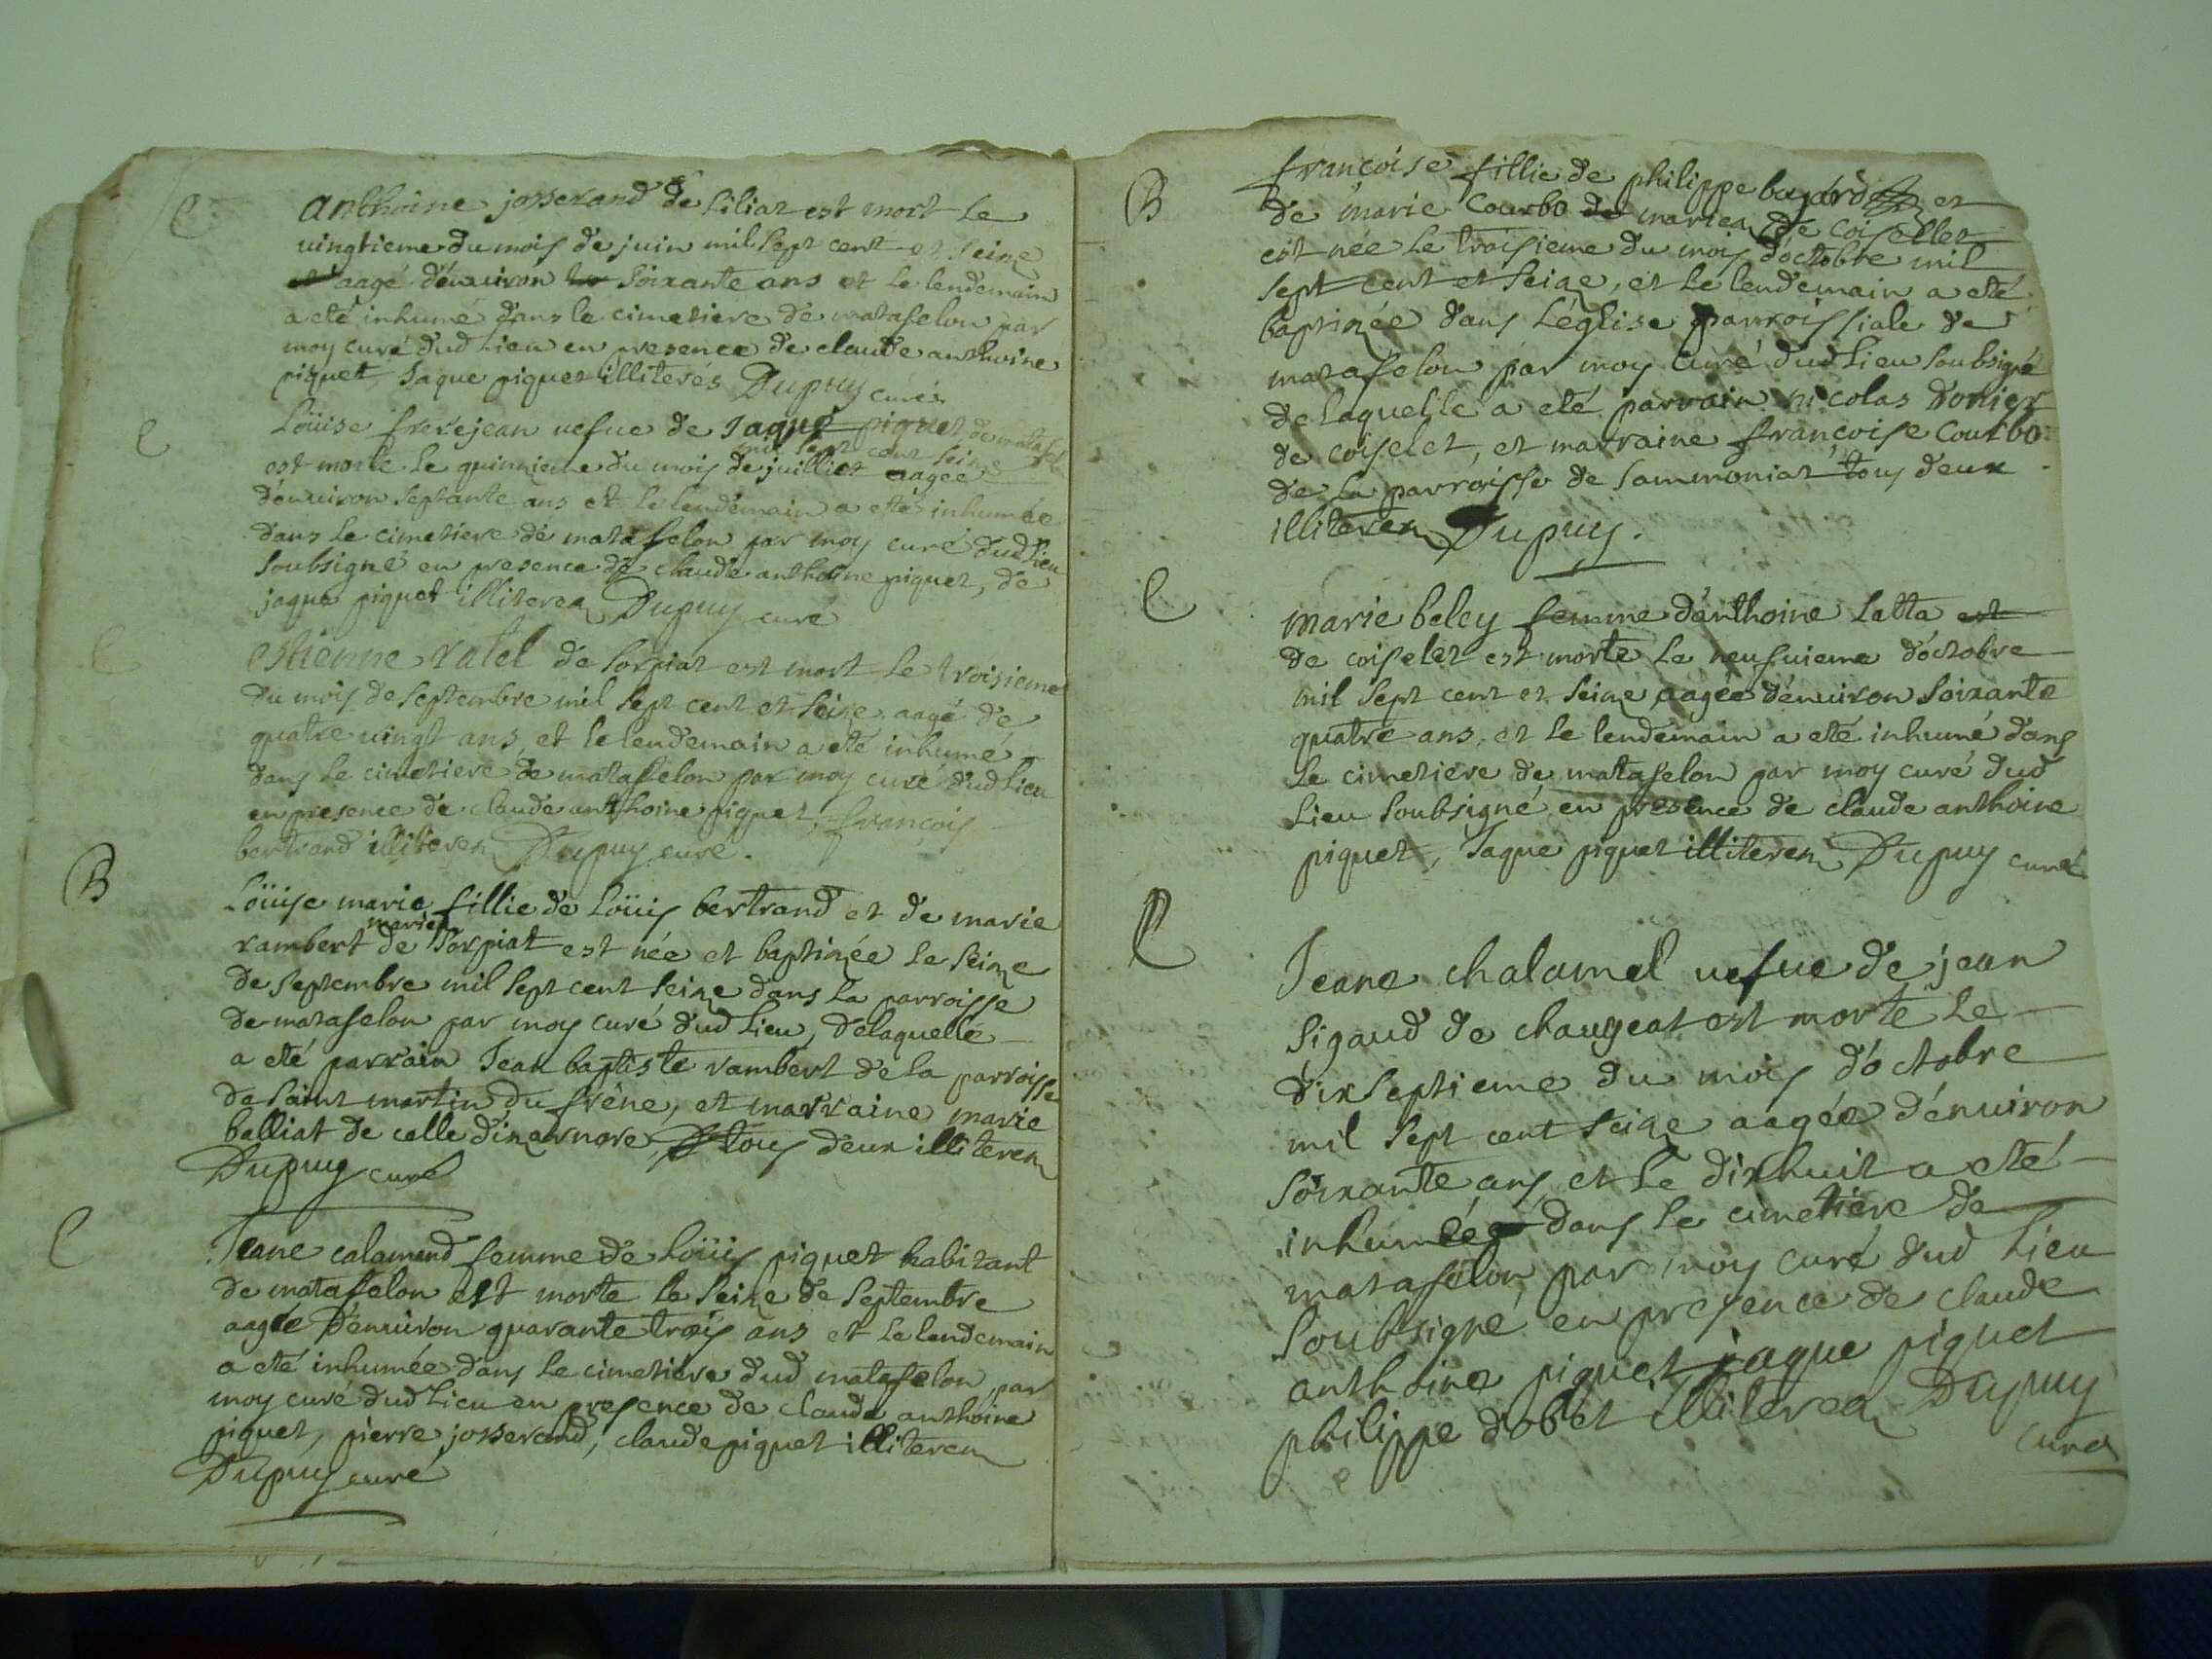 C
anthoine josserand de siliat est mort le
vingtieme du mois de juin mil sept cent et seize
aagé d'environ soixante ans et le lendemain
a eté inhumé dans le cimetiere de matafelon par
moy curé dud lieu en presence de claude anthoine
piquet, Jaque piquet illiterés Dupuy curé
C
Loüise frerejean vefve de Jaque piquet de mataf
mil sept cent seize
est morte le quinzieme du mois de juilliet aagée
d'environ septante ans et le lendemain a eté inhumée
dans le cimetiere de matafelon par moy curé dud lieu
soubsigné en presence de claude anthoine piquet, de
jaque piquet illiterez Dupuy curé
C
estienne ratel de sorpiat est mort le troisieme
du mois de septembre mil sept cent et seize aagé de
quatre vingt ans et le lendemain a eté inhumé
dans le cimetiere de matafelon par moy curé dud lieu
en presence de claude anthoine piquet, françois
bertrand illiterez Dupuy curé.
B
Loüise marie fillie de Loüis bertrand et de marie
mariez
rambert de sorpiat est née et baptizée le seize
de septembre mil sept cent seize dans la parroisse
de matafelon par moy curé dud lieu, delaquelle
a eté parrain Jean baptiste rambert de la parroisse
de saint martin du frêne, et marraine marie
balliat de celle d'izernore, tous deux illiterez
Dupuy curé
C
Jeane calamand femme de Loüis piquet habitant
de matafelon est morte le seize de septembre
aagée d'environ quarante trois ans et le lendemain
a eté inhumée dans le cimetiere dud matafelon par
moy curé dud lieu en presence de claude anthoine
piquet, pierre josserand, claude piquet illiterez
Dupuy curé
B
françoise fillie de philippe bayard et
de marie Courbo mariez de coisellet
est née le troisieme du mois d'octobre mil
sept cent et seize, et le lendemain a eté
baptizée dans L'église parroissiale de
matafelon par moy curé dud lieu soubsigné
de laquelle a eté parrain nicolas donier
de coiselet, et marraine françoise Courbo
de la parroisse de sammoniat tous deux
illiterez Dupuy.
C
marie beley femme d'anthoine Latta
de coiselet est morte le neufvieme d'octobre
mil sept cent et seize aagée d'environ soixante
quatre ans, et le lendemain a eté inhumé dans
le cimetiere de matafelon par moy curé dud
lieu soubsigné en presence de claude anthoine
piquet, Jaque piquet illiterez Dupuy curé
C
Jeane chalamel vefve de jean
sigaud de chaugeat est morte le
dixseptieme du mois d'octobre
mil sept cent seize aagée d'environ
soixante ans et le dixhuit a eté
inhumée dans le cimetiere de
matafelon par moy curé dud lieu
soubsigné en presence de claude
anthoine piquet jaque piquet
philippe dobet illiterez Dupuy
curé